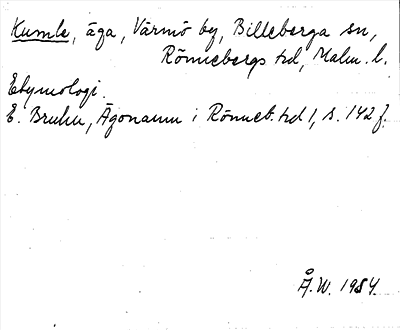 Kumle, äga, Värmö by, Billeberga sn,
Rönnebergs hd, Malm. l.
Etymologi.
E. Bruhn, Ägonamn i Rönneb. hd 1, s. 142 f.
Å.W. 1954.